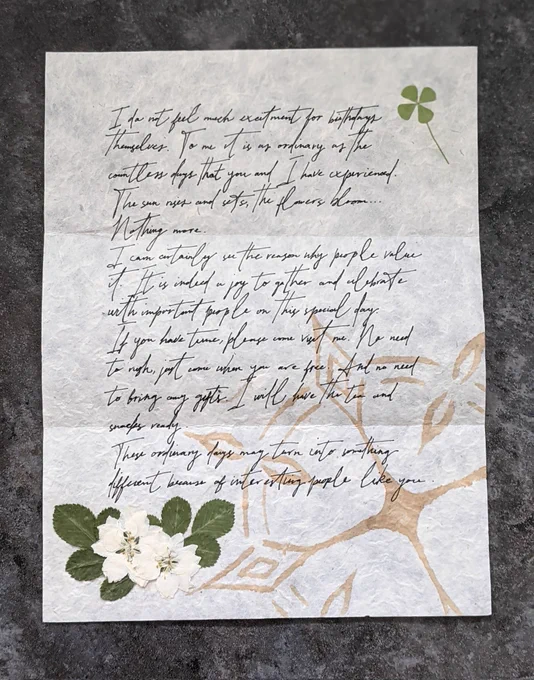 I do not feel much excitment for birthdays
themselves. To me it is as ordinary as the
countless days that you and I have experienced.
The sun rises and sets, the flowers bloom...
Nothing more.
I can certainly see the reason why people value
it. It is indeed a joy to gather and celebrate
with important people on this special day.
If you have time, please come visit me. No need
to rush, just come when you are free. And no need
to bring any gifts. I will have the tea and
snacks ready.
These ordinary days may turn into something
different because of interesting people like you...